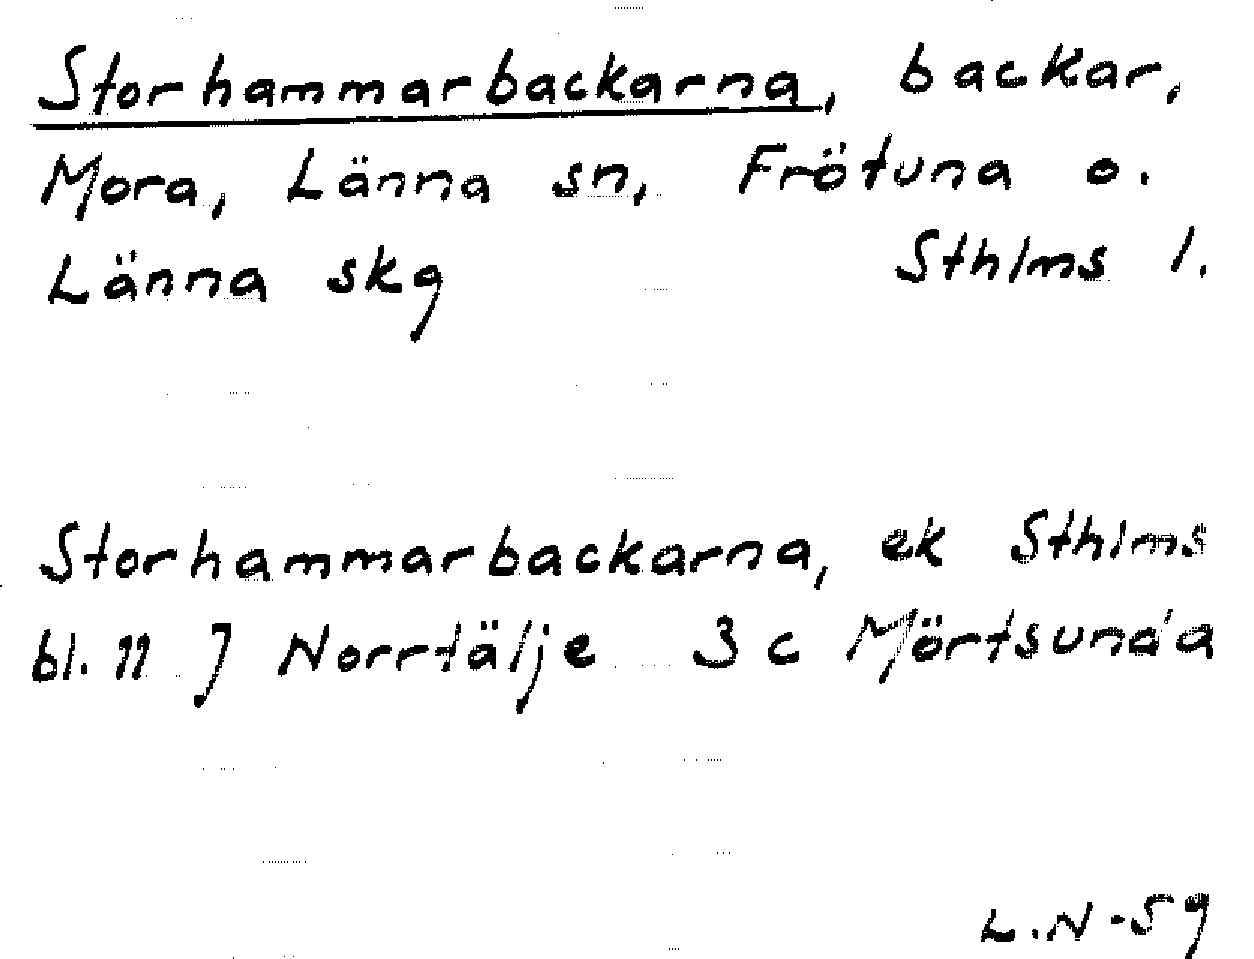 Storhammarbackarna, backar,
Mora, Länna sn, Frötuna o.
Länna skg Sthlms l.
Storhammarbackarna, ek Sthlms
bl. 11 J Norrtälje 3 c Mörtsunda
L.N-59